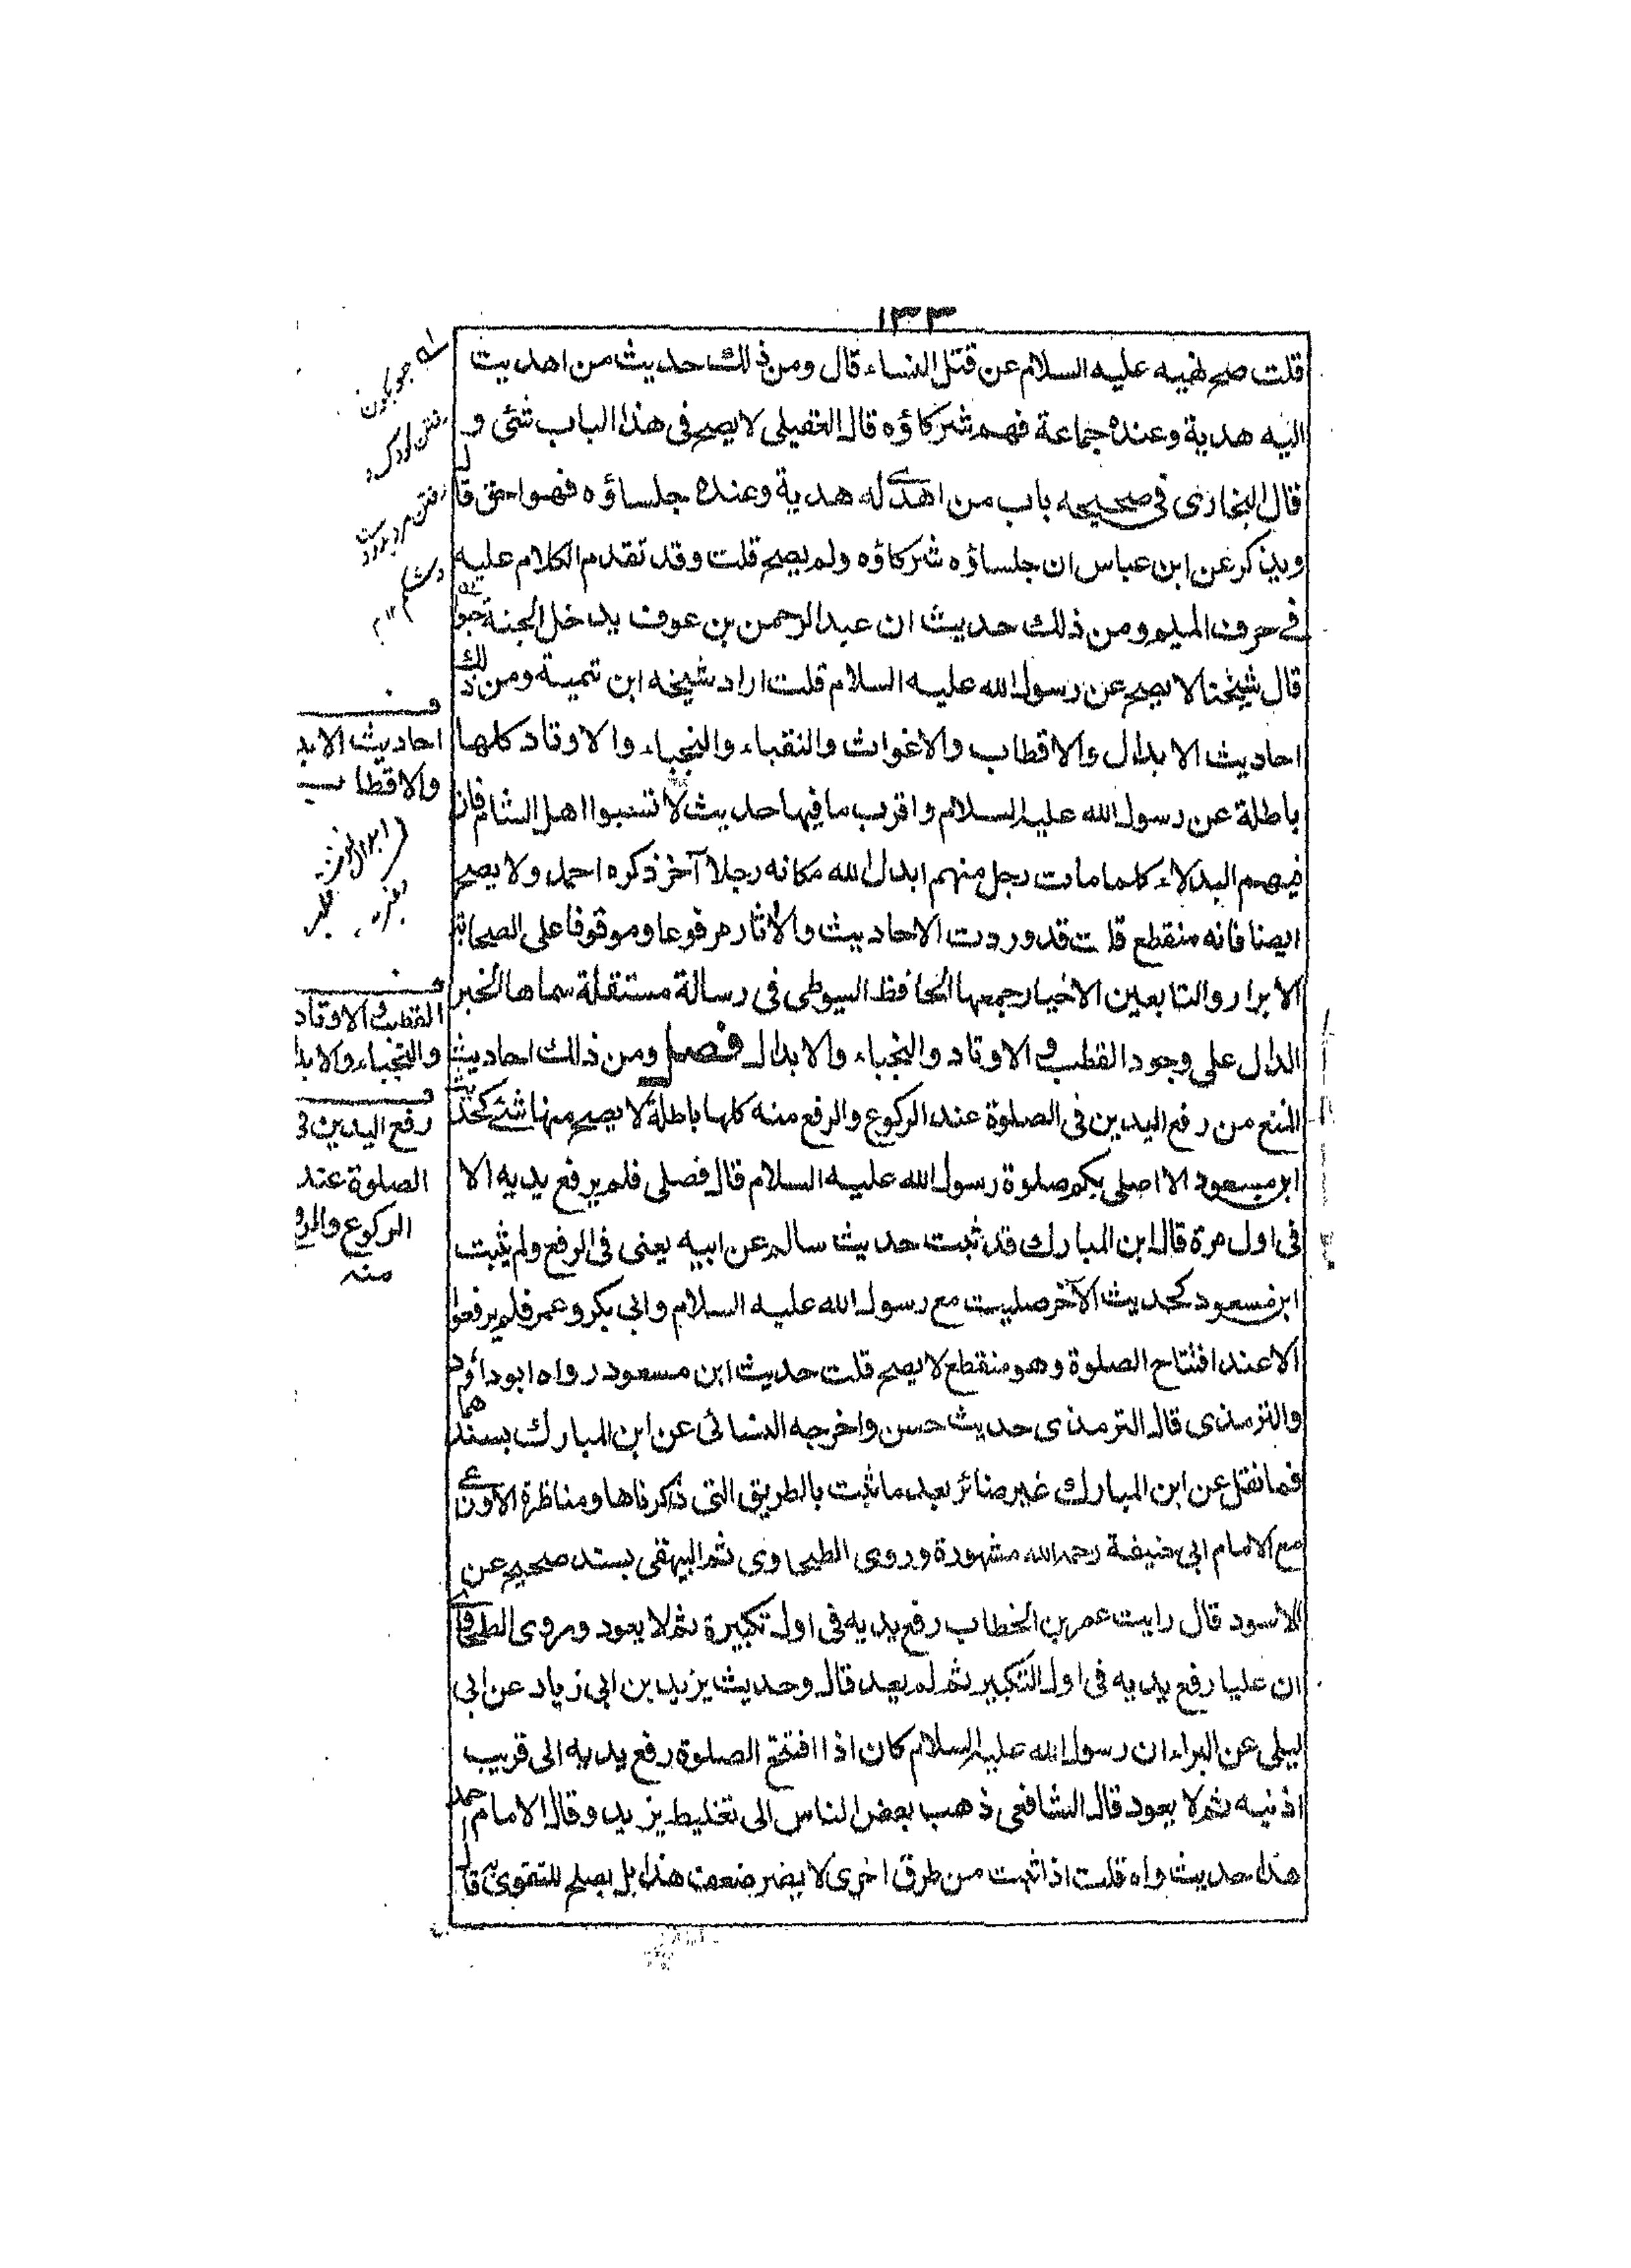 ١٣٣
قلت صح نهيه عليه السلام عن قتل النساء قال ومن ذلك حديث من اهديت
اليه هدية وعنده جماعة فهم شركاؤه قال العقيلى لا يصح فى هذا الباب شئى و
قال البخارى فى صحيحه باب من اهدى له هدية وعنده جلساؤه فهو احق قال
ويذكر عن ابن عباس ان جلساؤه شركاؤه ولم يصح قلت وقد تقدم الكلام عليه
فى حرف الميم ومن ذلك حديث ان عبد الرحمن بن عوف يدخل الجنة حبوا
قال شيخنا لا يصح عن رسول الله عليه السلام قلت اراد شيخه ابن تيمية ومن ذلك
احاديث الابدال والاقطاب والاغواث والنقباء والنجباء والاوتاد كلها
باطلة عن رسول الله عليه السلام واقرب ما فيها حديث لا تسبوا اهل الشام فان
فيهم البدلاء كلما مات رجل منهم ابدل الله مكانه رجلا آخر ذكره احمد ولا يصح
ايضا فانه منقطع قلت قد وردت الاحاديث والآثار مرفوعا وموقوفا على الصحابة
الابرار والتابعين الاخيار جمعها الحافظ السيوطى فى رسالة مستقلة سماها الخبر
الدال على وجود القطب و الاوتاد والنجباء والابدال فصل ومن ذلك احاديث
المنع من رفع اليدين فى الصلوة عند الركوع والرفع منه كلها باطلة لا يصح منها شئ كحديث
ابن مسعود الا اصلى بكم صلوة رسول الله عليه السلام قال فصلى فلم يرفع يديه الا
فى اول مرة قال ابن المبارك قد ثبت حديث سالم عن ابيه يعنى فى الرفع ولم يثبت
ابن مسعود كحديث الآخر صليت مع رسول الله عليه السلام وابى بكر وعمر فلم يرفعوا
الا عند افتتاح الصلوة وهو منقطع لا يصح قلت حديث ابن مسعود رواه ابو داؤد
والترمذى قال الترمذى حديث حسن واخرجه النسائى عن ابن المبارك بسندهما
فما نقل عن ابن المبارك غير ضائر بعد ما ثبت بالطريق التى ذكرناها ومناظرة الاوزاعى
مع الامام ابى حنيفة رحمه الله مشهورة وروى الطحاوى ثم البيهقى بسند صحيح عن
الاسود قال رايت عمر بن الخطاب رفع يديه فى اول تكبيرة ثم لا يعود وروى الطحاوى
ان عليا رفع يديه فى اول التكبير ثم لم يعد قال وحديث يزيد بن ابى زياد عن ابى
ليلى عن البراء ان رسول الله عليه السلام كان اذا افتتح الصلوة رفع يديه الى قريب
اذنيه ثم لا يعود قال الشافعى ذهب بعض الناس الى تغليط يزيد وقال الامام احمد
هذا حديث واه قلت اذا ثبت من طرق اخرى لا يضر ضعف هذا بل يصلح للتقوية قال
احاديث الابد
والاقطاب
القطب و الاوتاد
والنجباء والابدا
رفع اليدين فى
الصلوة عند
الركوع والرفع
منه